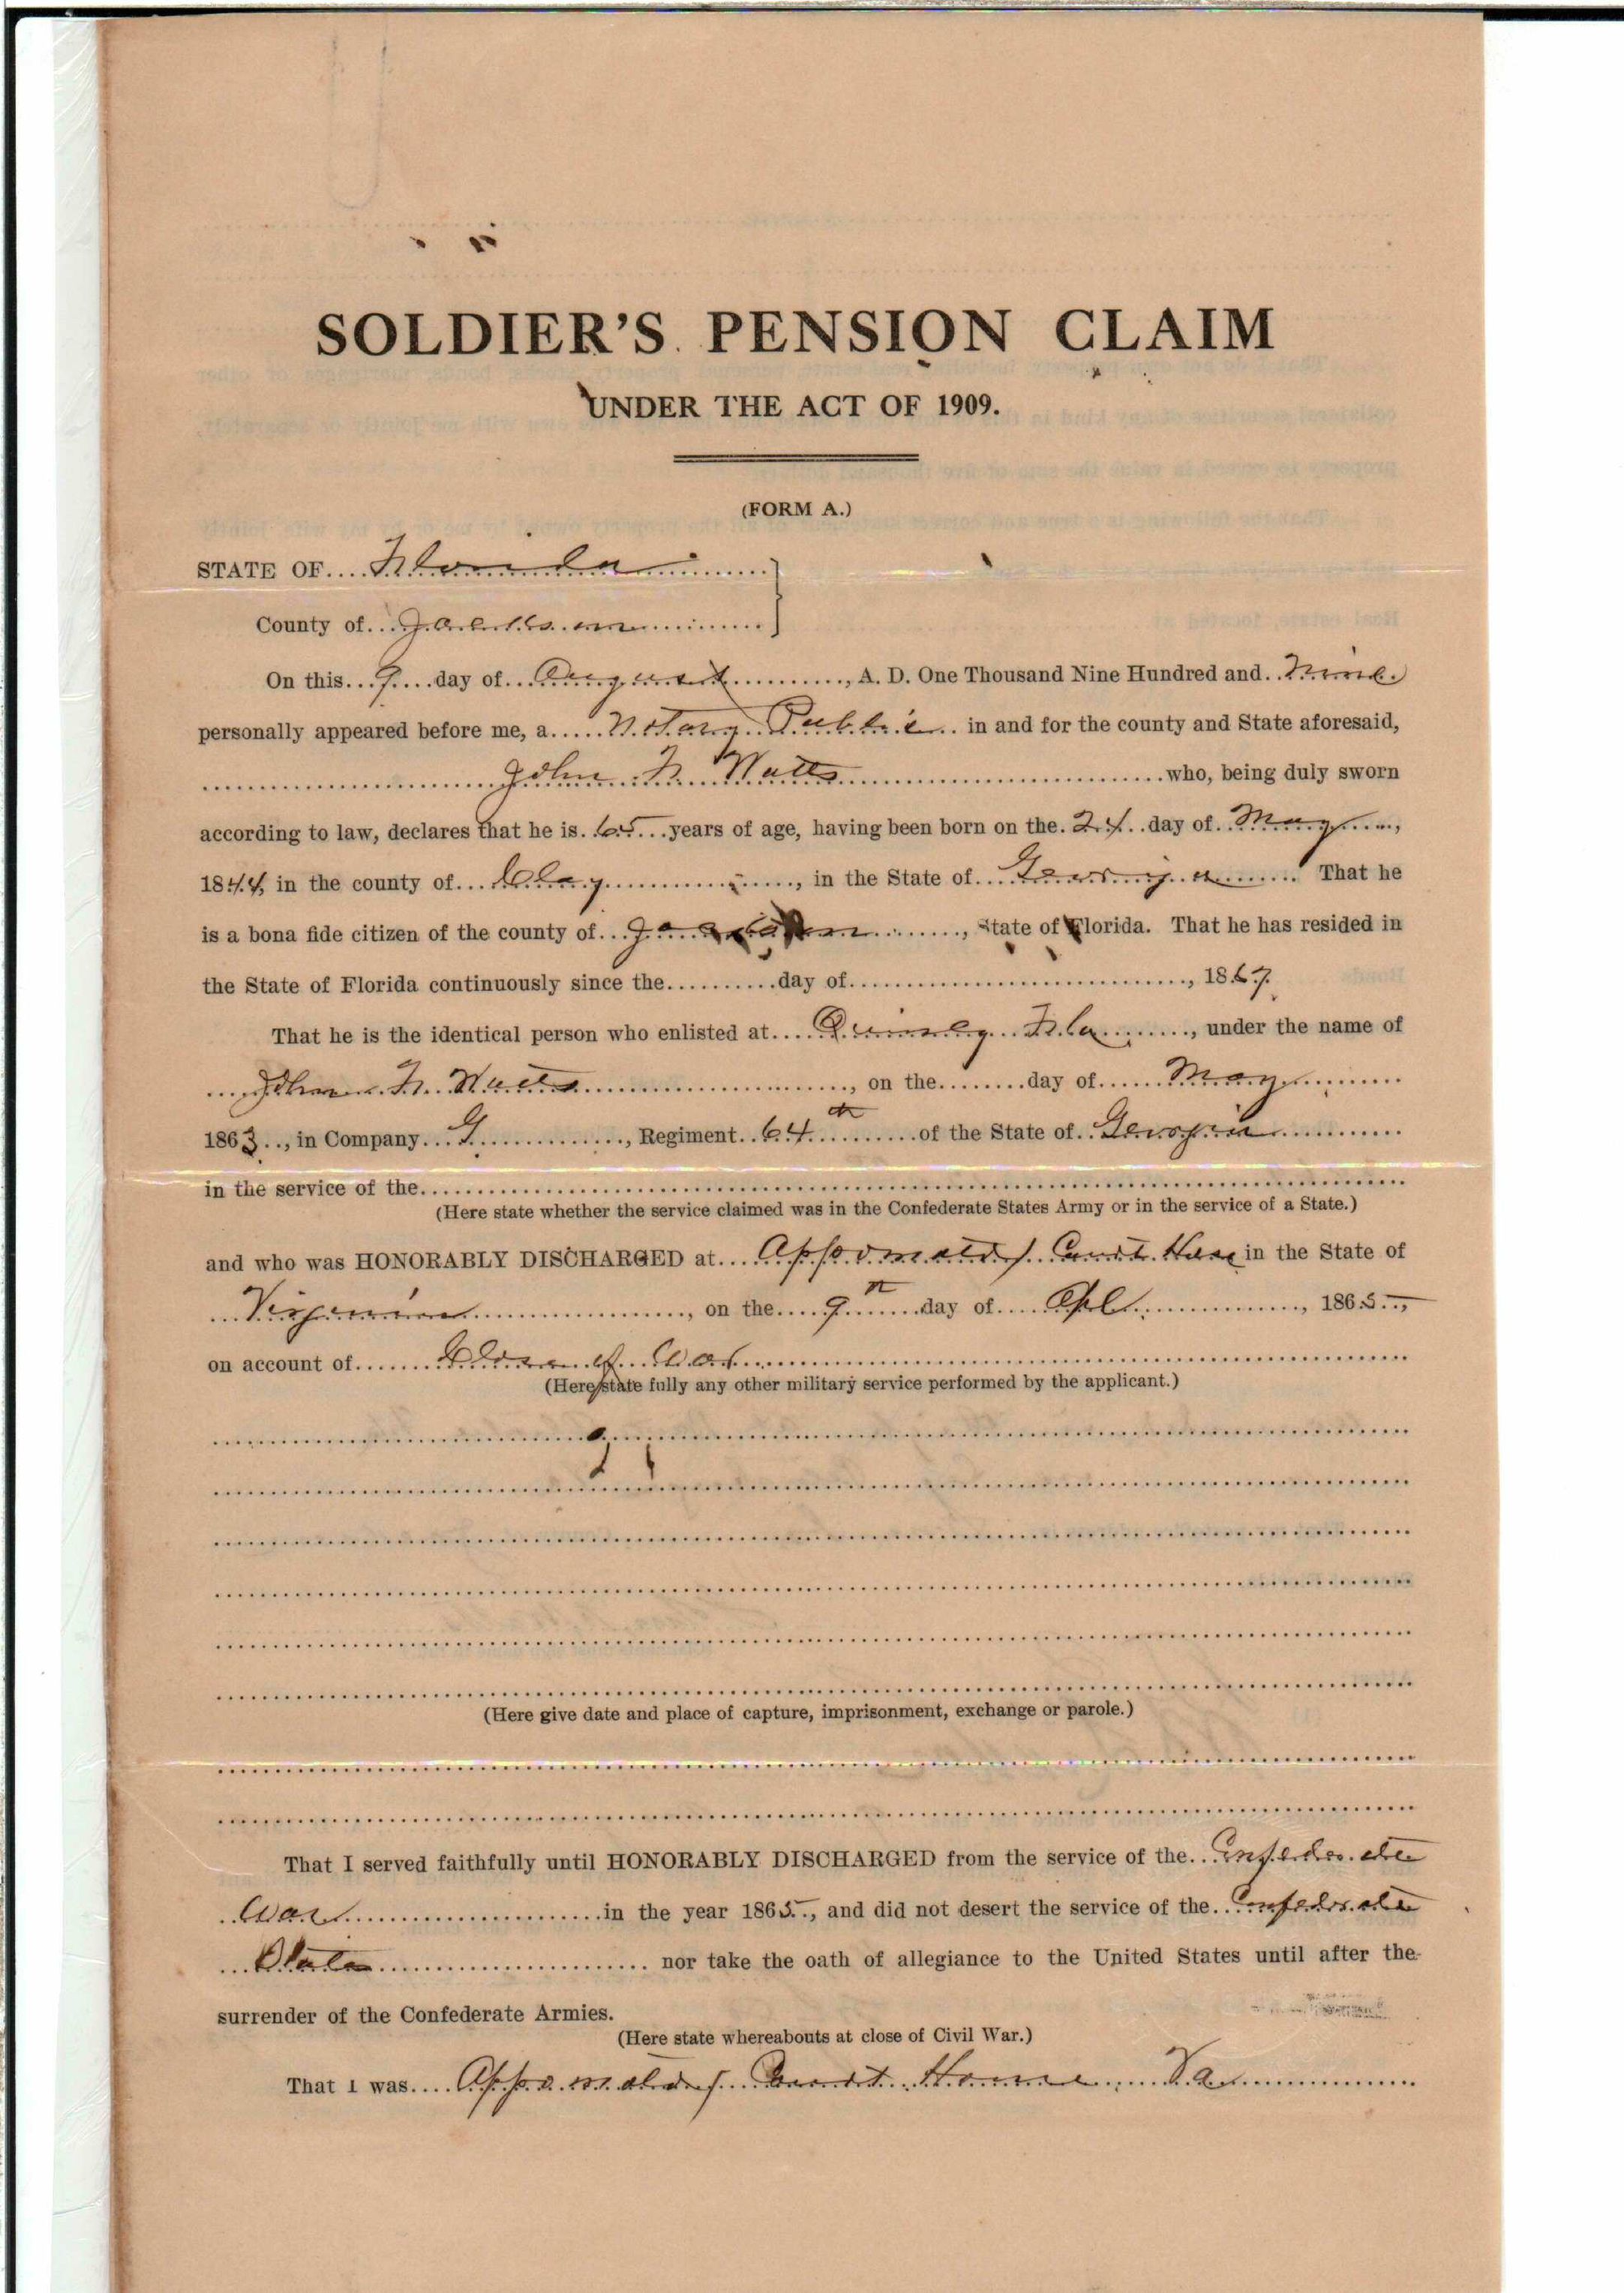 SOLDIER'S PENSION CLAIM
UNDER THE ACT OF 1909.
(FORM A.)
STATE OF Florida
County of Jackson
On this 9 day of August, A. D. One Thousand Nine Hundred and Nine
personally appeared before me, a Notary Public in and for the county and State aforesaid,
John F. Watts who, being duly sworn
according to law, declares that he is 65 years of age, having been born on the 24 day of May,
1844, in the county of Clay, in the State of Georgia That he
is a bona fide citizen of the county of Jackson, State of Florida. That he has resided in
the State of Florida continuously since the day of, 1867
That he is the identical person who enlisted at Quincy Fla, under the name of
John F. Watts, on the day of May
1863, in Company G, Regiment 64th of the State of Georgia
in the service of the
(Here state whether the service claimed was in the Confederate States Army or in the service of a State.)
and who was HONORABLY DISCHARGED at Appomatox Court House in the State of
Virginia, on the 9th day of Apl, 1865,
on account of Close of War
(Here state fully any other military service performed by the applicant.)
(Here give date and place of capture, imprisonment, exchange or parole.)
That I served faithfully until HONORABLY DISCHARGED from the service of the Confederate
War in the year 1865, and did not desert the service of the Confederate
State nor take the oath of allegiance to the United States until after the
surrender of the Confederate Armies.
(Here state whereabouts at close of Civil War.)
That I was Appomatox Court House, Va